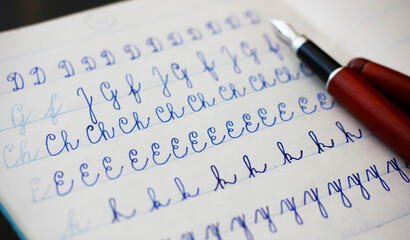 D D D D D D D D D D D D
G f J G f J G f J G f
Ch Ch Ch Ch Ch Ch Ch Ch Ch
E E E E E E E E E E E E E E
k k k k k k k k
y y y y y y y y y